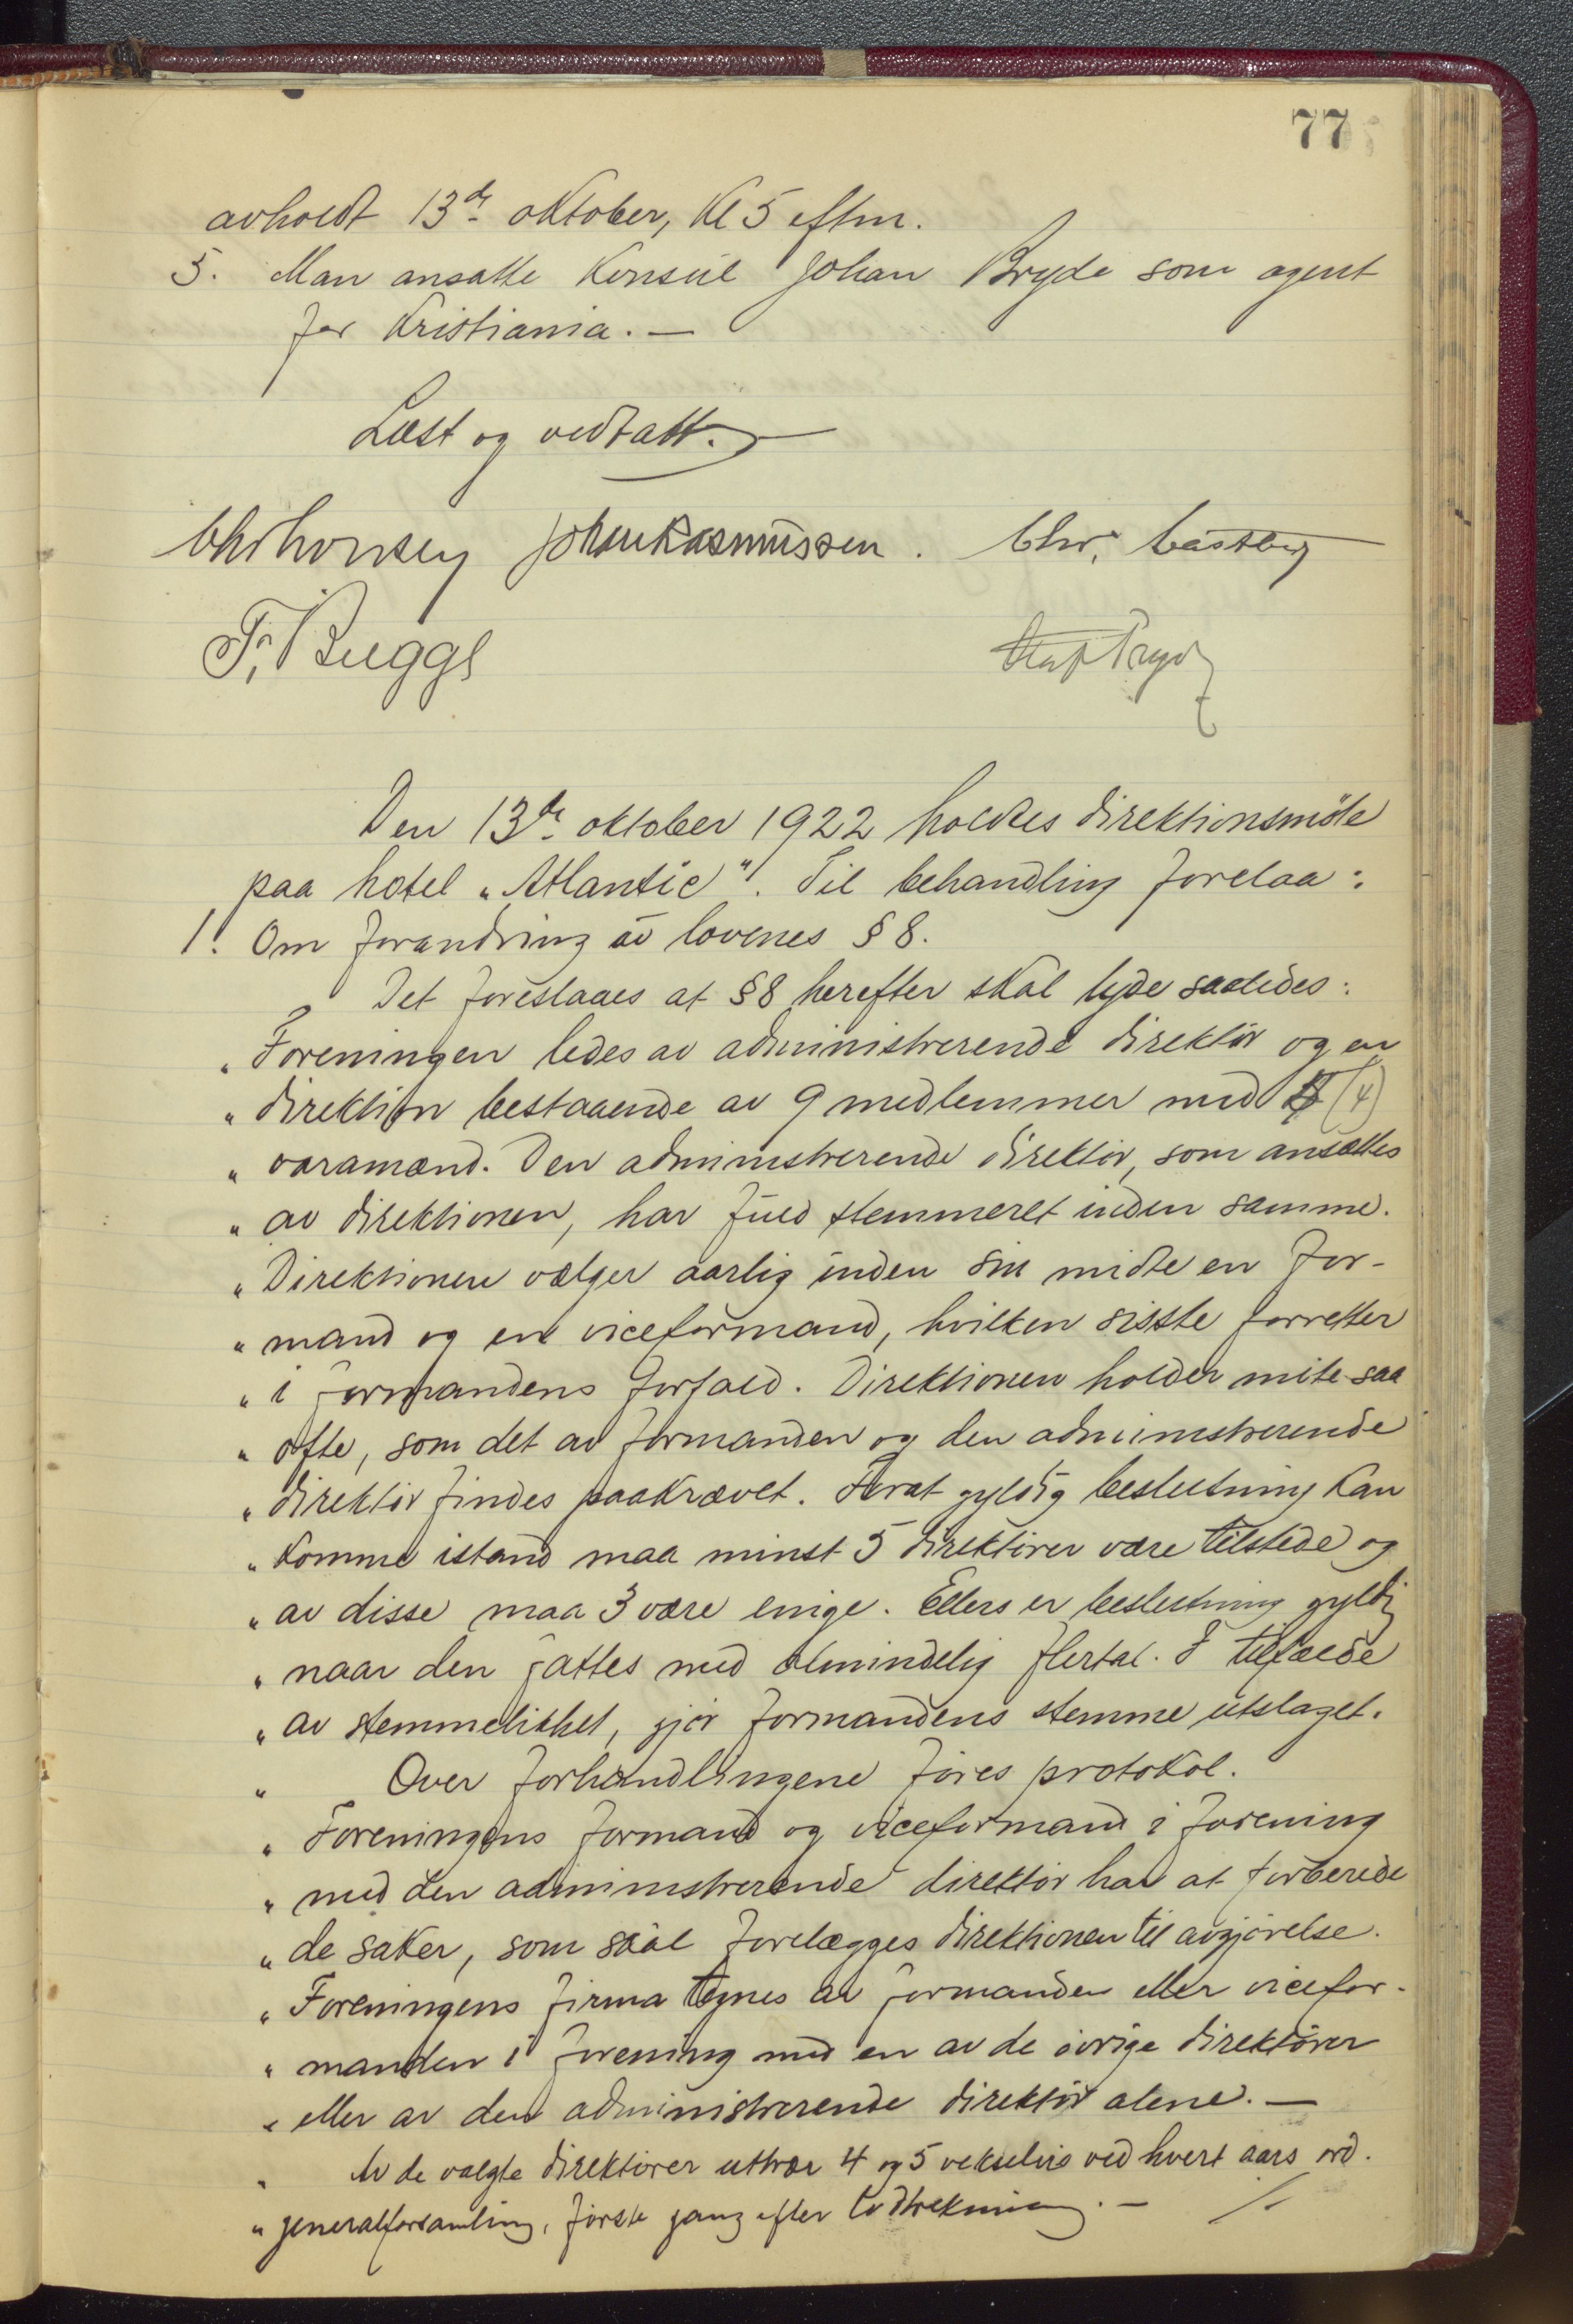 77
avholdt 13de oktober, Kl 5 eftm.
5. Man ansatte Konsul Johan Bryde som agent
for Kristiania. —
Læst og vedtatt. —
Johan Rasmussen. Chr. Castberg
F. Bugge
Den 13de oktober 1922 holdtes direktionsmöte
paa hotel „Atlantic". Til behandling forelaa:
1. Om forandring av lovenes § 8.
Det foreslaaes at § 8 herefter skal lyde saaledes:
„ Foreningen ledes av administrerende direktör og en
„ direktion bestaaende av 9 medlemmer med (4)
„ varamænd. Den administrerende direktör, som ansættes
„ av direktionen, har fuld stemmeret inden samme.
„ Direktionen vælger aarlig inden sin midte en for-
„ mand og en viceformand, hvilken sisste forretter
„ i formandens forfald. Direktionen holder möte saa
„ ofte, som det av formanden og den administrerende
„ direktör findes paakrævet. Forat gyldig beslutning kan
„ komme istand maa minst 5 direktörer være tilstede og
„ av disse maa 3 være enige. Ellers er beslutning gyldig
„ naar den fattes med almindelig flertal. I tilfælde
„ av stemmelikhet, gjör formandens stemme utslaget.
„ Over forhandlingene föres protokol.
„ Foreningens formand og viceformand i forening
„ med den administrerende direktör har at forberede
„ de saker, som skal forelægges direktionen til avgjörelse.
„ Foreningens firma tegnes av formanden eller vicefor-
„ manden i forening med en av de övrige direktörer
„ eller av den administrerende direktör alene. —
„ Av de valgte direktörer uttrær 4 og 5 vekselvis ved hvert aars ord.
„ generalforsamling, förste gang efter lodtrekning. — ⁒